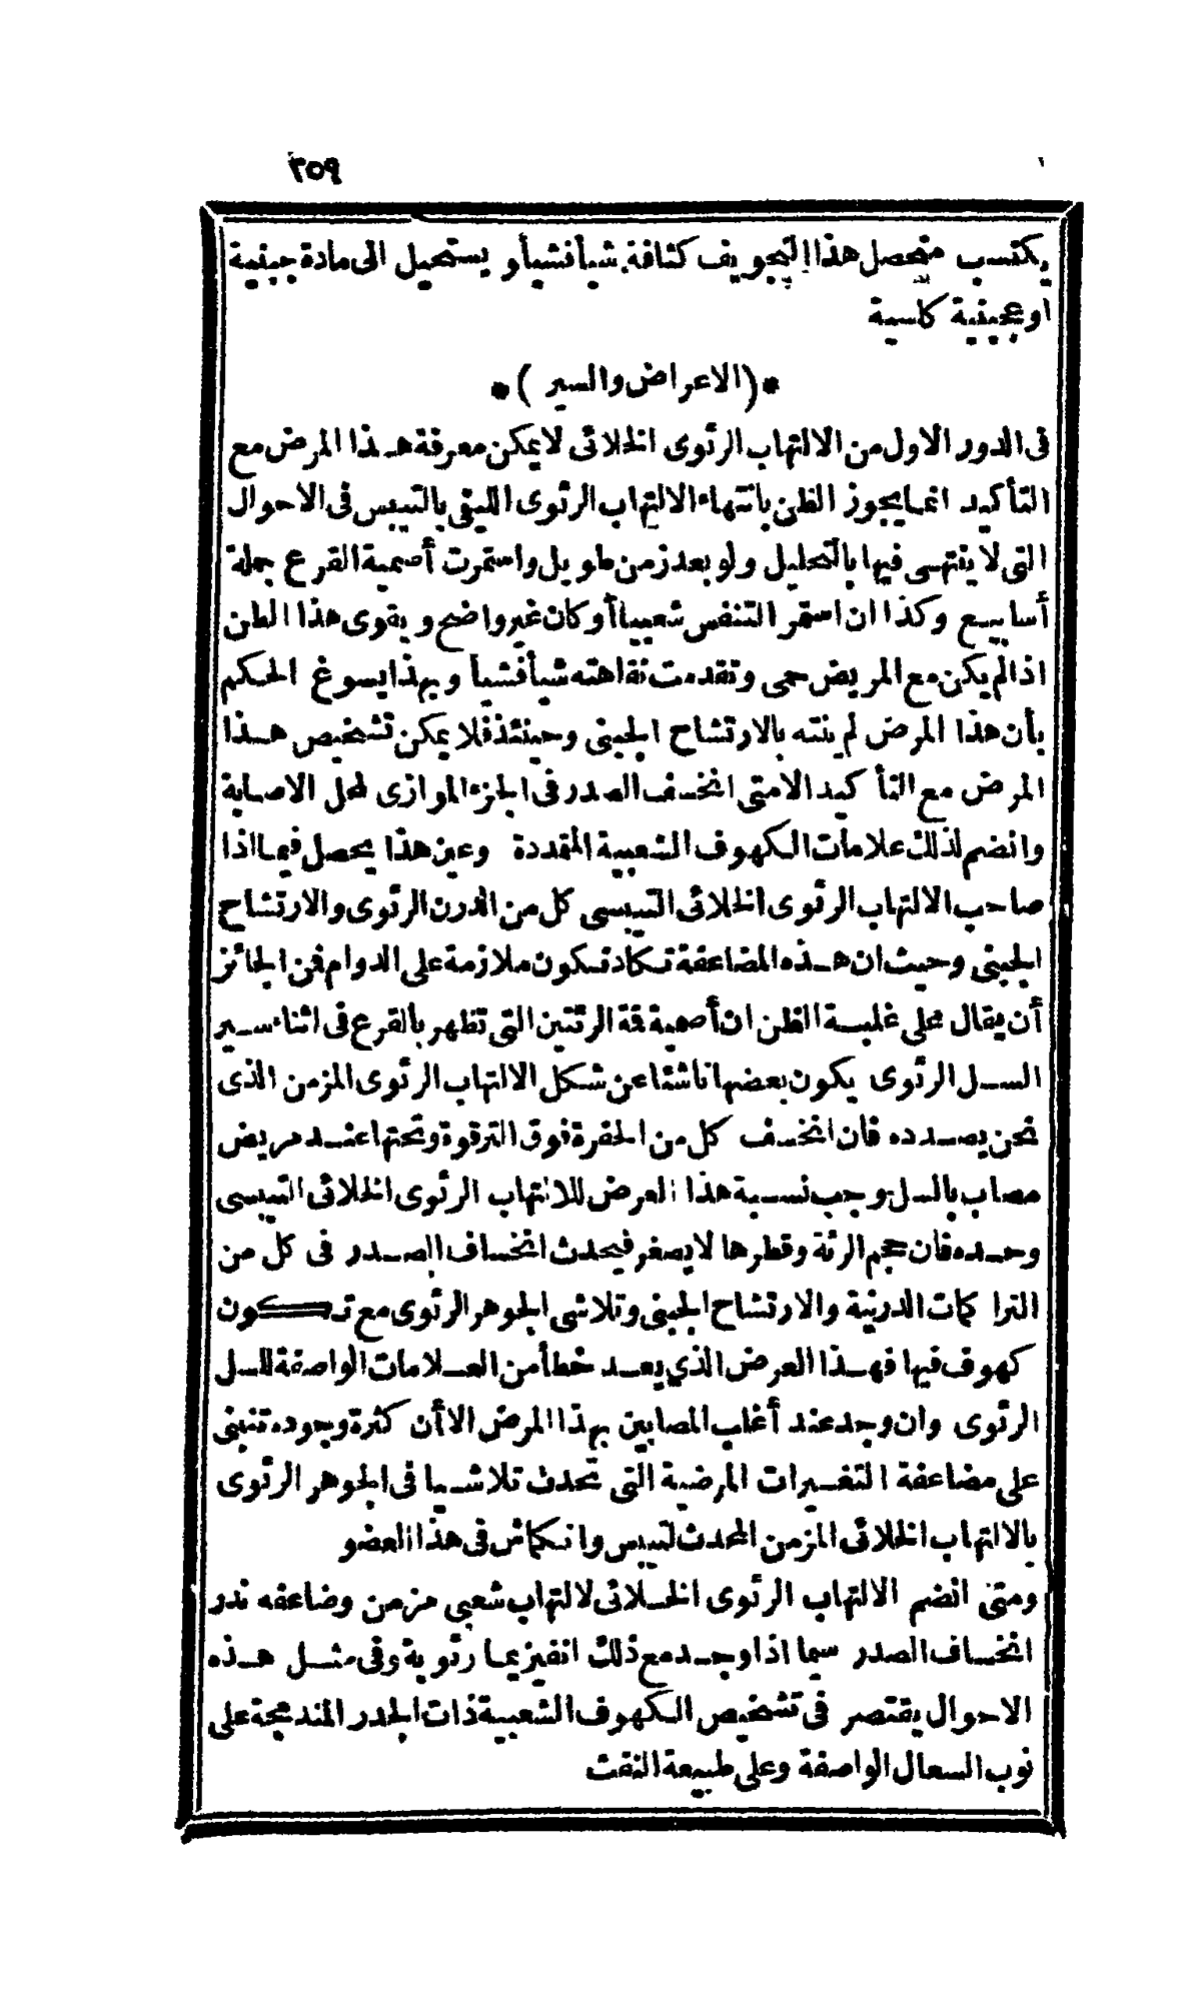 ٣٥٩
يكتسب متحصل هذا التجويف كثافة شيأ فشيأ أو يستحيل الى مادة جبنية
او عجينية كلسية
*(الاعراض والسير)*
فى الدور الاول من الالتهاب الرئوى الخلائى لا يمكن معرفة هذا المرض مع
التأكيد انما يجوز الظن بانتهاء الالتهاب الرئوى الليفى بالتيبس فى الاحوال
التى لا ينتهى فيها بالتحليل ولو بعد زمن طويل واستمرت أصمية القرع جملة
أسابيع وكذا ان استمر التنفس شعبيا أو كان غير واضح ويقوى هذا الظن
اذا لم يكن مع المريض حمى وتقدمت نقاهته شيأ فشيأ وبهذا يسوغ الحكم
بأن هذا المرض لم ينته بالارتشاح الجبنى وحينئذ فلا يمكن تشخيص هذا
المرض مع التأكيد الا متى انخسف الصدر فى الجزء الموازى لمحل الاصابة
وانضم لذلك علامات الكهوف الشعبية المتمددة وعين هذا يحصل فيما اذا
صاحب الالتهاب الرئوى الخلائى التيبسى كل من الدرن الرئوى والارتشاح
الجبنى وحيث ان هذه المضاعفة تكاد تكون ملازمة على الدوام فمن الجائز
أن يقال على غلبة الظن ان أصمية قمة الرئتين التى تظهر بالقرع فى اثناء سير
السل الرئوى يكون بعضها ناشئا عن شكل الالتهاب الرئوى المزمن الذى
نحن بصدده فان انخسف كل من الحفرة فوق الترقوة وتحتها عند مريض
مصاب بالسل وجب نسبة هذا العرض للالتهاب الرئوى الخلائى التيبسى
وحده فان حجم الرئة وقطرها لا يصغر فيحدث انخساف الصدر فى كل من
التراكمات الدرنية والارتشاح الجبنى وتلاشى الجوهر الرئوى مع تكون
كهوف فيها فهذا العرض الذي يعد خطأ من العلامات الواصفة للسل
الرئوى وان وجد عند أغلب المصابين بهذا المرض الا أن كثرة وجوده تنبنى
على مضاعفة التغيرات المرضية التى تحدث تلاشيا فى الجوهر الرئوى
بالالتهاب الخلائى المزمن المحدث لتيبس وانكماش فى هذا العضو
ومتى انضم الالتهاب الرئوى الخلائى لالتهاب شعبى مزمن وضاعفه ندر
انخساف الصدر سيما اذا وجد مع ذلك انفيزيما رئوية وفى مثل هذه
الاحوال يقتصر فى تشخيص الكهوف الشعبية ذات الجدر المندمجة على
نوب السعال الواصفة وعلى طبيعة النفث